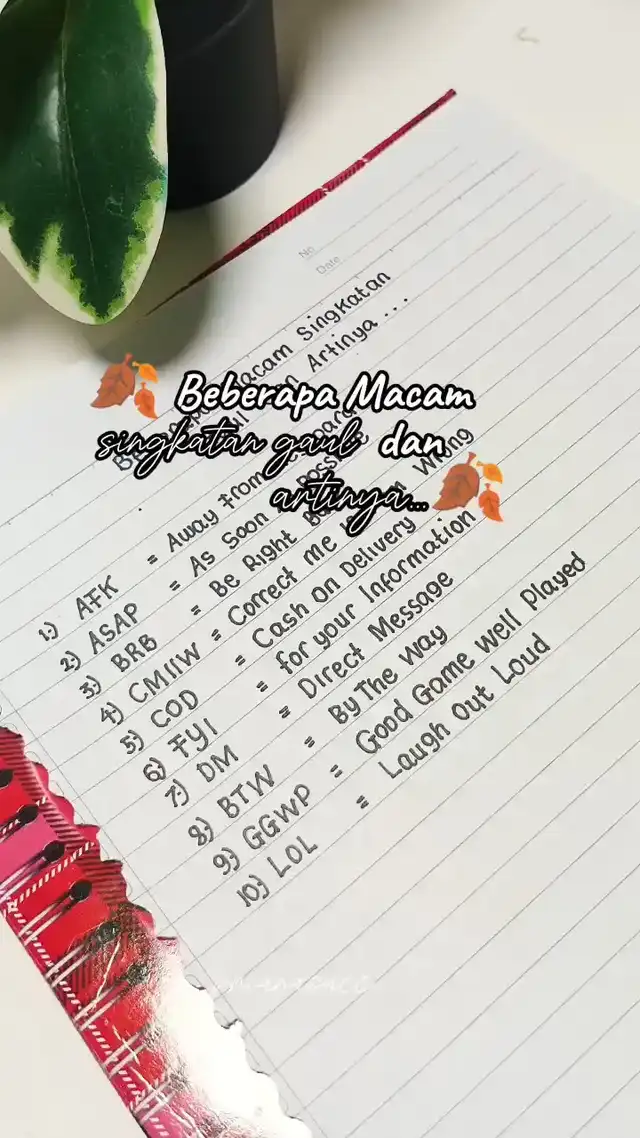 No
Date
Macam Singkatan
Artinya ...
Beberapa Macam
singkatan gaul dan
artinya...
1.) AFK = Away From
2.) ASAP = As Soon
3.) BRB = Be Right
4.) CMIIW = Correct Me Wrong
5.) COD = Cash On Delivery
6.) FYI = for your Information
7.) DM = Direct Message
8.) BTW = By The Way
9.) GGWP = Good Game Well Played
10.) LOL = Laugh Out Loud